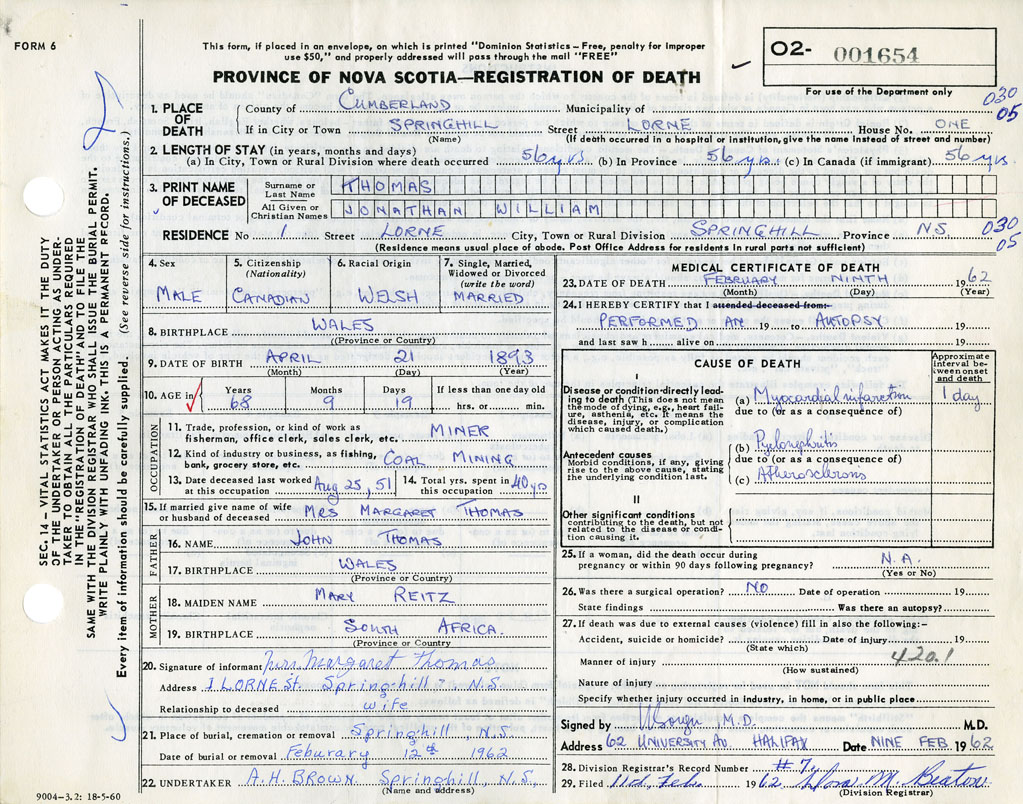 FORM 6
This form, if placed in an envelope, on which is printed "Dominion Statistics – Free, penalty for improper
use $50," and properly addressed will pass through the mail "FREE"
O2- 001654
For use of the Department only
PROVINCE OF NOVA SCOTIA—REGISTRATION OF DEATH
SEC. 14 – VITAL STATISTICS ACT MAKES IT THE DUTY
OF THE UNDERTAKER OR PERSON ACTING AS UNDER-
TAKER TO OBTAIN ALL THE PARTICULARS REQUIRED
IN THE "REGISTRATION OF DEATH" AND TO FILE THE
SAME WITH THE DIVISION REGISTRAR WHO SHALL ISSUE THE BURIAL PERMIT.
WRITE PLAINLY WITH UNFADING INK. THIS IS A PERMANENT RECORD.
Every item of information should be carefully supplied. (See reverse side for instructions.)
1. PLACE OF DEATH
County of CUMBERLAND Municipality of
030
05
If in City or Town SPRINGHILL Street LORNE House No. ONE
(Name) (If death occurred in a hospital or institution, give the name instead of street and number)
2. LENGTH OF STAY (in years, months and days)
(a) In City, Town or Rural Division where death occurred 56 yrs (b) In Province 56 yrs. (c) In Canada (if immigrant) 56 yrs
3. PRINT NAME OF DECEASED
Surname or Last Name THOMAS
All Given or Christian Names JONATHAN WILLIAM
RESIDENCE No 1 Street LORNE City, Town or Rural Division SPRINGHILL Province N.S. 030
05
(Residence means usual place of abode. Post Office Address for residents in rural parts not sufficient)
4. Sex
MALE
5. Citizenship
(Nationality)
CANADIAN
6. Racial Origin
WELSH
7. Single, Married,
Widowed or Divorced
(write the word)
MARRIED
8. BIRTHPLACE WALES
((Province or Country)
9. DATE OF BIRTH APRIL 21 1893
(Month) (Day) (Year)
10. AGE in
Years Months Days If less than one day old
68 9 19 hrs. or min.
OCCUPATION
11. Trade, profession, or kind of work as
fisherman, office clerk, sales clerk, etc. MINER
12. Kind of industry or business, as fishing,
bank, grocery store, etc. COAL MINING
13. Date deceased last worked
at this occupation Aug 25, 51
14. Total yrs. spent in
this occupation 40 yrs
15. If married give name of wife
or husband of deceased MRS MARGARET THOMAS
FATHER
16. NAME JOHN THOMAS
17. BIRTHPLACE WALES
(Province or Country)
MOTHER
18. MAIDEN NAME MARY REITZ
19. BIRTHPLACE SOUTH AFRICA
(Province or Country)
20. Signature of informant Mrs. Margaret Thomas
Address 1 LORNE St. Springhill N.S.
Relationship to deceased wife
21. Place of burial, cremation or removal Springhill, N.S.
Date of burial or removal Feburary 12th 1962
22. UNDERTAKER A.H. BROWN Springhill N.S.
(Name and address)
9004-3.2: 18-5-60
MEDICAL CERTIFICATE OF DEATH
23. DATE OF DEATH FEBRUARY NINTH 1962
(Month) (Day) (Year)
24. I HEREBY CERTIFY that I attended deceased from:-
PERFORMED AN 19 to AUTOPSY 19
and last saw h alive on 19
CAUSE OF DEATH
Approximate
interval be-
tween onset
and death
I
Disease or condition directly lead-
ing to death (This does not mean
the mode of dying, e.g., heart fail-
ure, asthenia, etc. It means the
disease, injury, or complication
which caused death.)
(a) Myocardial infarction 1 day
due to (or as a consequence of)
Antecedent causes
Morbid conditions, if any, giving
rise to the above cause, stating
the underlying condition last.
(b) Pyelonephritis
due to (or as a consequence of)
(c) Atherosclerosis
II
Other significant conditions
contributing to the death, but not
related to the disease or condi-
tion causing it.
25. If a woman, did the death occur during
pregnancy or within 90 days following pregnancy? N.A.
(Yes or No)
26. Was there a surgical operation? NO Date of operation 19
State findings Was there an autopsy?
27. If death was due to external causes (violence) fill in also the following:-
Accident, suicide or homicide? Date of injury 19
(State which)
420.1
Manner of injury
(How sustained)
Nature of injury
Specify whether injury occurred in industry, in home, or in public place
Signed by M.D. M.D.
Address 62 UNIVERSITY AV HALIFAX Date NINE FEB 1962
28. Division Registrar's Record Number #7
29. Filed 11th Feb. 1962 M. Beaton
(Division Registrar)